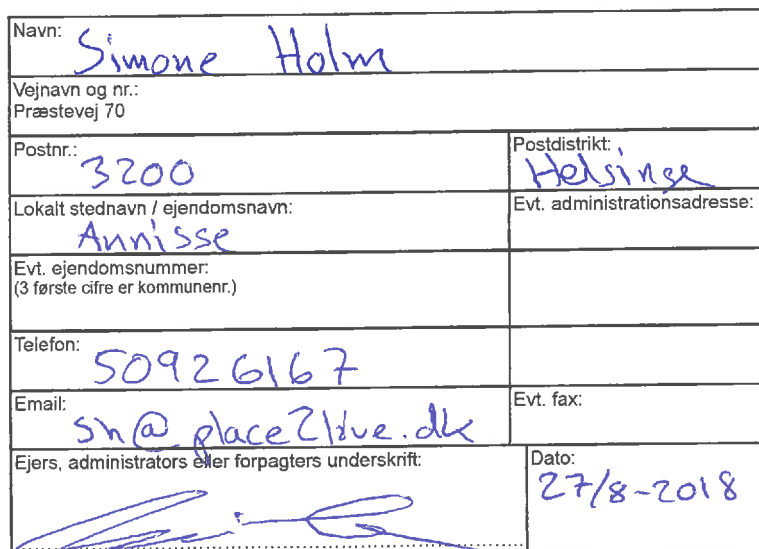 Navn: Simone Holm
Vejnavn og nr.:
Præstevej 70
Postnr.: 3200
Postdistrikt: Helsinge
Lokalt stednavn / ejendomsnavn: Annisse
Evt. administrationsadresse:
Evt. ejendomsnummer:
(3 første cifre er kommunenr.)
Telefon: 50926167
Email: sh@place2live.dk
Evt. fax:
Ejers, administrators eller forpagters underskrift:
Dato: 27/8-2018